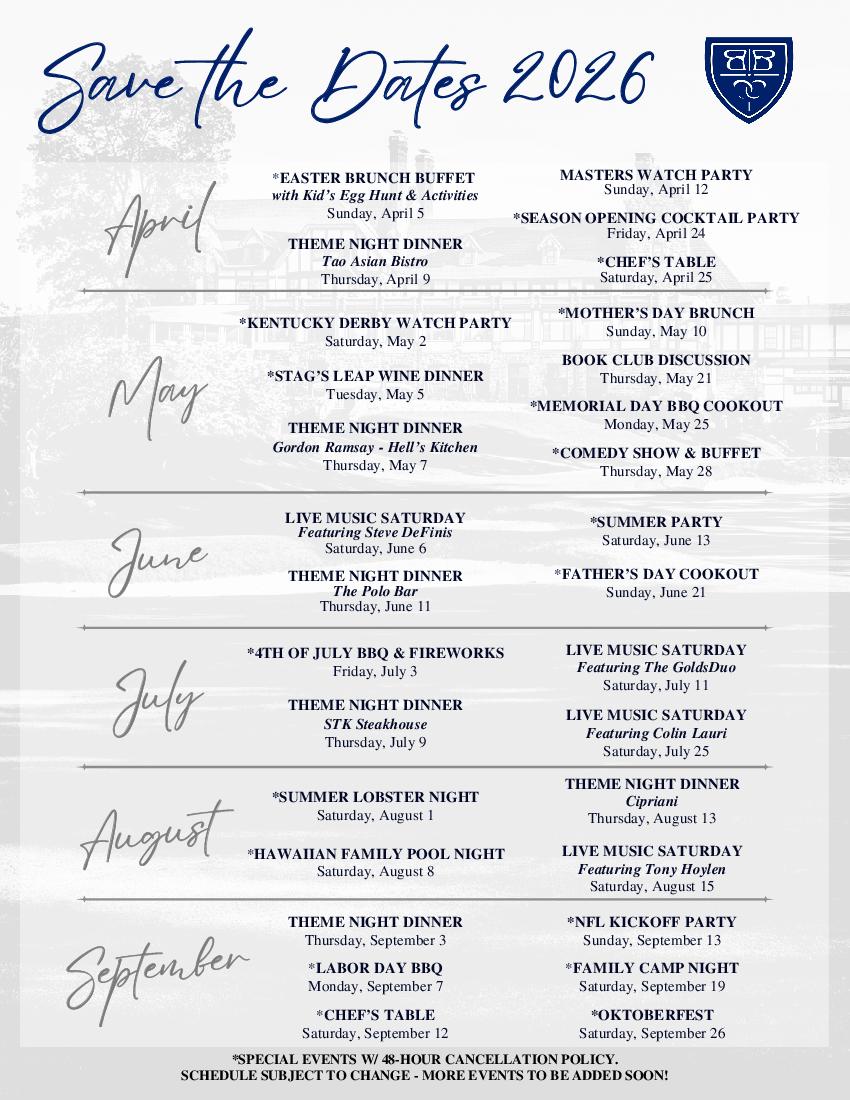 Save the Dates 2026
BB
CC
April
*EASTER BRUNCH BUFFET
with Kid's Egg Hunt & Activities
Sunday, April 5
THEME NIGHT DINNER
Tao Asian Bistro
Thursday, April 9
MASTERS WATCH PARTY
Sunday, April 12
*SEASON OPENING COCKTAIL PARTY
Friday, April 24
*CHEF'S TABLE
Saturday, April 25
May
*KENTUCKY DERBY WATCH PARTY
Saturday, May 2
*STAG'S LEAP WINE DINNER
Tuesday, May 5
THEME NIGHT DINNER
Gordon Ramsay - Hell's Kitchen
Thursday, May 7
*MOTHER'S DAY BRUNCH
Sunday, May 10
BOOK CLUB DISCUSSION
Thursday, May 21
*MEMORIAL DAY BBQ COOKOUT
Monday, May 25
*COMEDY SHOW & BUFFET
Thursday, May 28
June
LIVE MUSIC SATURDAY
Featuring Steve DeFinis
Saturday, June 6
THEME NIGHT DINNER
The Polo Bar
Thursday, June 11
*SUMMER PARTY
Saturday, June 13
*FATHER'S DAY COOKOUT
Sunday, June 21
July
*4TH OF JULY BBQ & FIREWORKS
Friday, July 3
THEME NIGHT DINNER
STK Steakhouse
Thursday, July 9
LIVE MUSIC SATURDAY
Featuring The GoldsDuo
Saturday, July 11
LIVE MUSIC SATURDAY
Featuring Colin Lauri
Saturday, July 25
August
*SUMMER LOBSTER NIGHT
Saturday, August 1
*HAWAIIAN FAMILY POOL NIGHT
Saturday, August 8
THEME NIGHT DINNER
Cipriani
Thursday, August 13
LIVE MUSIC SATURDAY
Featuring Tony Hoylen
Saturday, August 15
September
THEME NIGHT DINNER
Thursday, September 3
*LABOR DAY BBQ
Monday, September 7
*CHEF'S TABLE
Saturday, September 12
*NFL KICKOFF PARTY
Sunday, September 13
*FAMILY CAMP NIGHT
Saturday, September 19
*OKTOBERFEST
Saturday, September 26
*SPECIAL EVENTS W/ 48-HOUR CANCELLATION POLICY.
SCHEDULE SUBJECT TO CHANGE - MORE EVENTS TO BE ADDED SOON!